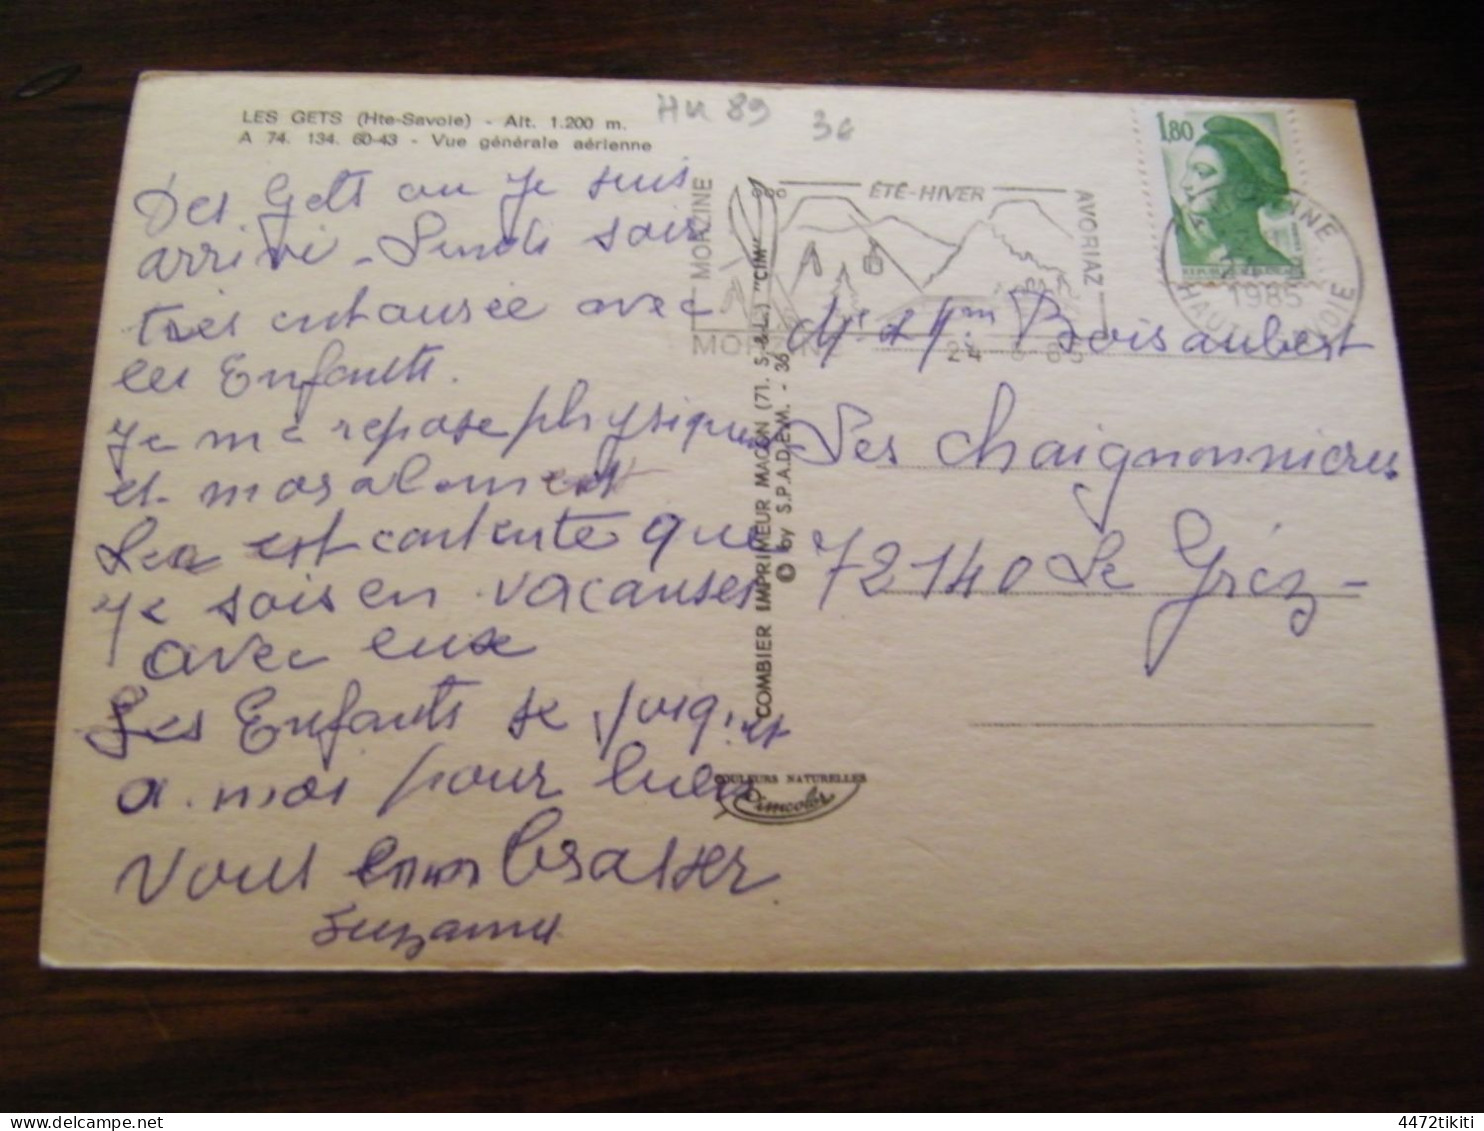 LES GETS (Hte-Savoie) - Alt. 1.200 m.
A 74. 134. 60-43 - Vue générale aérienne
HU 89
36
Des Gets ou je suis
arrivé - Lundi soir
très entourée avec
les Enfants.
Je me repose physique
et moralement
Lea est contente que
je sois en vacances
avec eux
Les Enfants se joignent
a moi pour bien
vous embrasser
Suzanne
MORZINE
ÉTÉ-HIVER
AVORIAZ
MORZINE
1,80
1985
HAUTE SAVOIE
Mr et Mm Boisaubert
Les Chaignonnieres
72140 Le Grez -
COMBIER IMPRIMEUR MACON (71. S.-&-L.) "CIM"
© by S.P.A.D.E.M. - 36
COULEURS NATURELLES
Cimcolor
4472tikiti